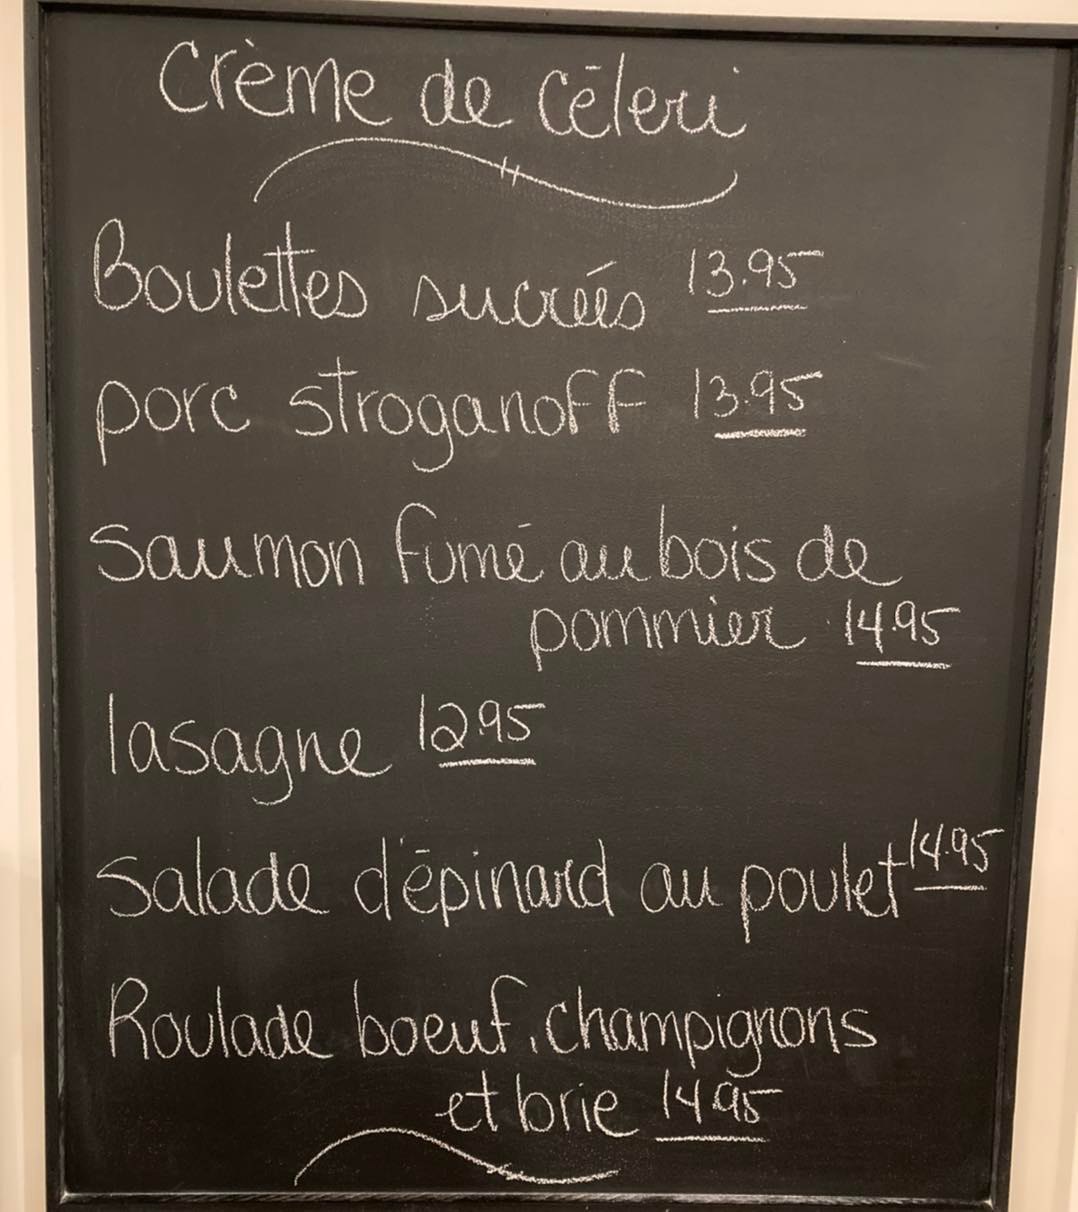 Crème de Céleri
Boulettes sucrées 13.95
porc stroganoff 13.95
Saumon fumé au bois de
pommier 14.95
lasagne 12.95
Salade d'épinard au poulet 14.95
Roulade boeuf, champignons
et brie 14.95